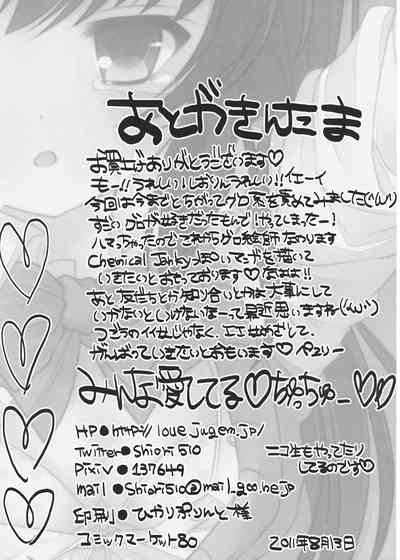 あとがきんたま
お買上げありがとうございます♡
もー!!うれしい!しおりんうれしい!!イエーイ
今回は今までとちがってグロ系を責めてみました
すごいグロが好きだったもんで けってしまったー!
ハマっちゃったので これからグロ絵師になります
Chemical Janky っぽいマンガを描いて
いきたいとおもっております♡ なおぉ!!
あと友だちとか知り合いとかは大事にして
いかないといけないなーって最近思いますね
つごうのイイ じゃなく、
がんばっていきたいとおもいます♡ ペぇリー
みんな愛してる♡ちゅっちゅー♡♡
HP●http://loue.jugem.jp/
Twitter●Shiori510
Pixiv●137649
ニコ生もやってたり
してるのです♡
mail●Shiori510@mail.goo.ne.jp
印刷●ひやりぷりんと様
コミックマーケット80
2011年8月13日